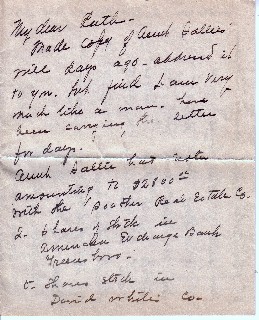 My dear Ruth -
Made copy of Aunt Sallie's
will days ago - addressed it
to you. but find I am very
much like a man - have
been carrying the letter
for days.
Aunt Sallie has notes
amounting to $2800.00
with the Souther Real Estate Co.
2 - Shares of Stock in
American Exchange Bank
Greensboro.
5 - Shares stock in
David White Co -